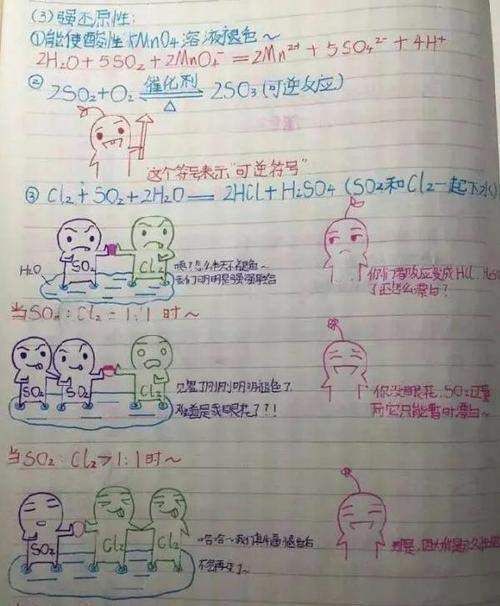 (3) 强还原性:
①能使酸性KMnO4溶液褪色~
2H2O+5SO2+2MnO4⁻=2Mn²⁺+5SO4²⁻+4H⁺
② 2SO2+O2 催化剂 △ 2SO3(可逆反应)
这个符号表示"可逆符号"
③ Cl2+SO2+2H2O=2HCl+H2SO4 (SO2和Cl2一起下水)
H2O SO2 Cl2
咦?怎么 褪色~
我们明明是强强联合
你们 反应变成HCl、H2SO
了还怎么漂白?
当SO2:Cl2=1:1时~
SO2 SO2 Cl2
见鬼了刚刚明明褪色了
难道是我眼花了?!
你没眼花,SO2过量
所它只能暂时漂白~
当SO2:Cl2>1:1时~
SO2 Cl2 Cl2
哈哈~我们 褪色后
不会再变了~
那是,因为 永久性